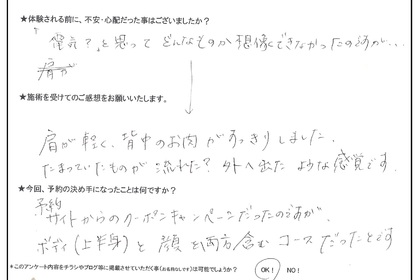 ★体験される前に、不安・心配だった事はございましたか？
「電気？」と思って どんなものか想像できなかったのですが…
肩が
★施術を受けてのご感想をお願いいたします。
肩が軽く、背中のお肉がすっきりしました。
たまっていたものが流れた？外へ出たような感覚です
★今回、予約の決め手になったことは何ですか？
予約
サイトからのクーポンキャンペーンだったのですが、
ボディ(上半身)と顔を両方含むコースだったとです
*このアンケート内容をチラシやブログ等に掲載させていただく事(お名前なしです)は可能でしょうか？ OK！ NO！